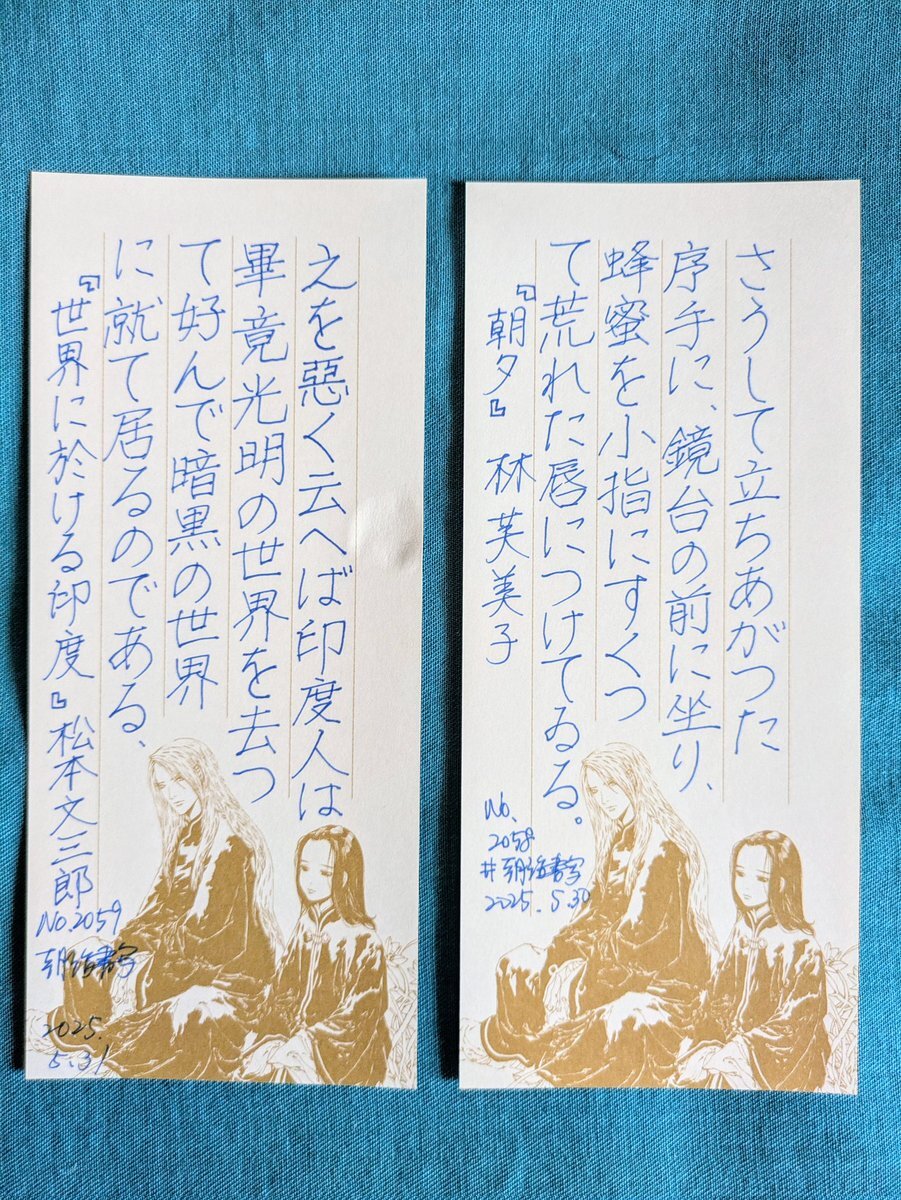 さうして立ちあがつた
序手に、鏡台の前に坐り、
蜂蜜を小指にすくつ
て荒れた唇につけてゐる。
『朝夕』 林芙美子
No.
2058
#朝活書写
2025.5.30
えを惡く云へば印度人は
畢竟光明の世界を去つ
て好んで暗黒の世界
に就て居るのである、
『世界に於ける印度』松本文三郎
No.2059
朝活書写
2025.
5.31